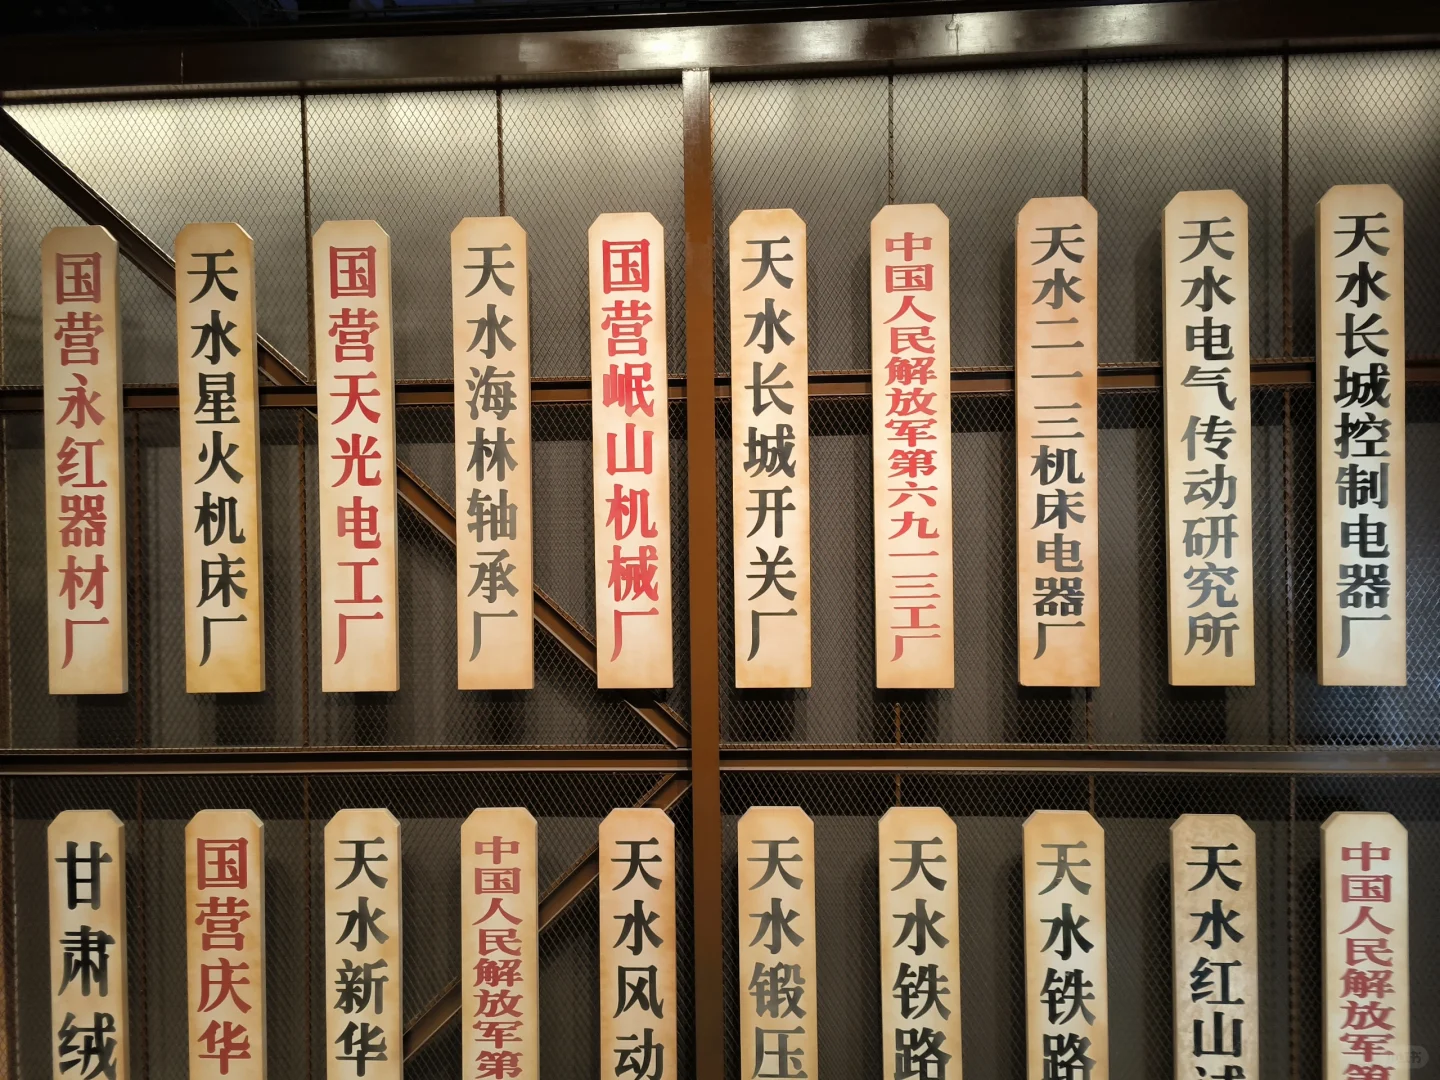 国营永红器材厂
天水星火机床厂
国营天光电工厂
天水海林轴承厂
国营岷山机械厂
天水长城开关厂
中国人民解放军第六九一三工厂
天水二一三机床电器厂
天水电气传动研究所
天水长城控制电器厂
甘肃绒
国营庆华
天水新华
中国人民解放军第
天水风动
天水锻压
天水铁路
天水铁路
天水红山试
中国人民解放军第